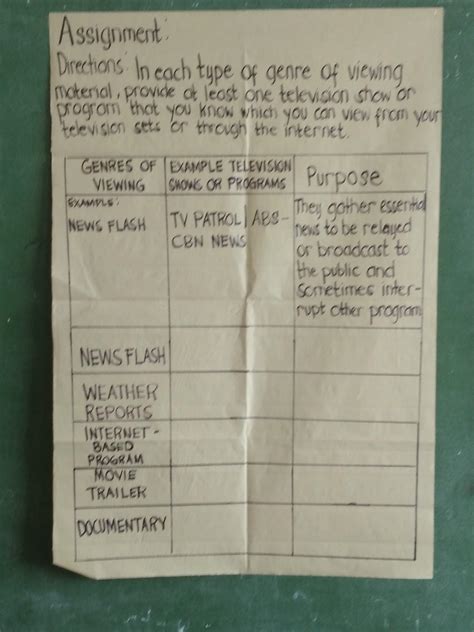 Assignment:
Directions: In each type of genre of viewing
material, provide at least one television show or
program that you know which you can view from your
television sets or through the internet.
GENRES OF
VIEWING
EXAMPLE TELEVISION
SHOWS OR PROGRAMS
Purpose
EXAMPLE:
NEWS FLASH
TV PATROL | ABS-
CBN NEWS
They gather essential
news to be relayed
or broadcast to
the public and
sometimes inter-
rupt other program
NEWS FLASH
WEATHER
REPORTS
INTERNET-
BASED
PROGRAM
MOVIE
TRAILER
DOCUMENTARY